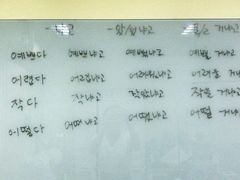 예쁘다 예쁘냐고 예뻤냐고 예쁠 거냐고
어렵다 어렵냐고 어려웠냐고 어려울 거냐고
작다 작냐고 작았냐고 작을 거냐고
어떻다 어떠냐고 어땠냐고 어떨 거냐고